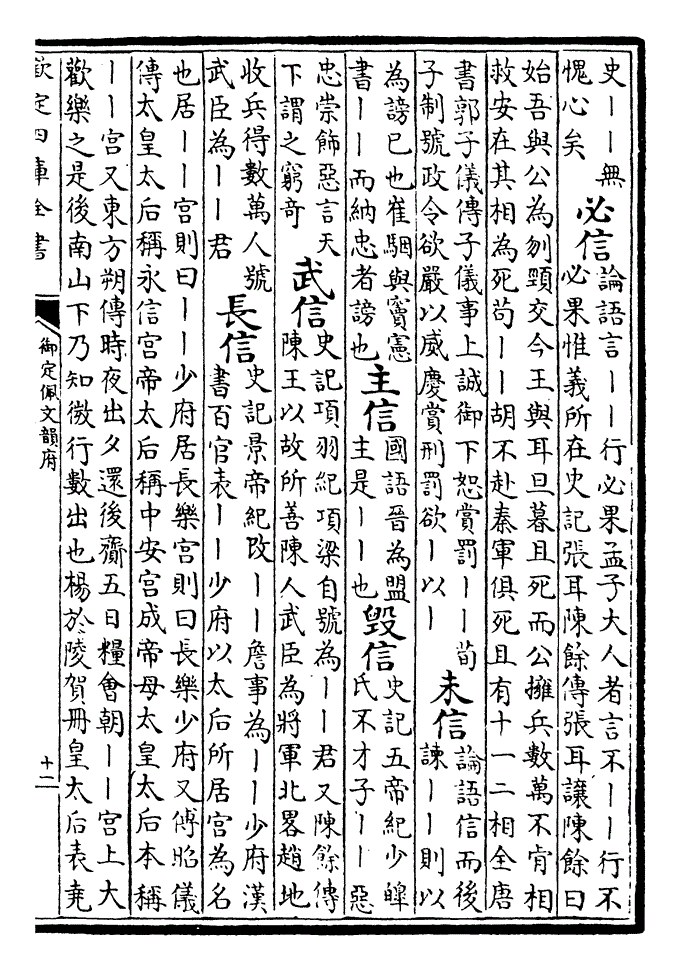 史丨丨無
愧心矣
必信
論語言丨丨行必果孟子大人者言不丨丨行不
必果惟義所在史記張耳陳餘傳張耳讓陳餘曰
始吾與公為刎頸交今王與耳旦暮且死而公擁兵數萬不肯相
救安在其相為死苟丨丨胡不赴秦軍俱死且有十一二相全唐
書郭子儀傳子儀事上誠御下恕賞罰丨丨荀
子制號政令欲嚴以威慶賞刑罰欲丨以丨
未信
論語信而後
諫丨丨則以
為謗已也崔駰與竇憲
書丨丨而納忠者謗也
主信
國語晉為盟
主是丨丨也
毁信
史記五帝紀少皥
氏不才子丨丨惡
忠崇飾惡言天
下謂之窮奇
武信
史記項羽紀項梁自號為丨丨君又陳餘傳
陳王以故所善陳人武臣為將軍北畧趙地
收兵得數萬人號
武臣為丨丨君
長信
史記景帝紀改丨丨詹事為丨丨少府漢
書百官表丨丨少府以太后所居宮為名
也居丨丨宮則曰丨丨少府居長樂宮則曰長樂少府又傅昭儀
傳太皇太后稱永信宮帝太后稱中安宮成帝母太皇太后本稱
丨丨宮又東方朔傳時夜出夕還後齎五日糧會朝丨丨宮上大
歡樂之是後南山下乃知微行數出也楊於陵賀冊皇太后表堯
欽定四庫全書
御定佩文韻府
十二